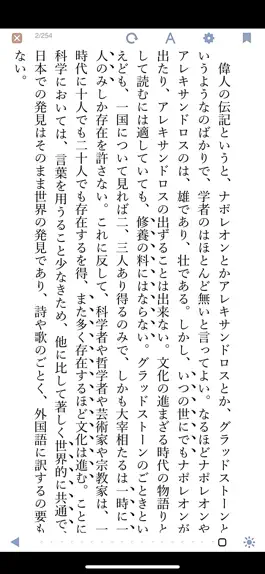 2/254
A
偉人の伝記というと、ナポレオンとかアレキサンドロスとか、グラッドストーンと
いうようなのばかりで、学者のはほとんど無いと言ってよい。なるほどナポレオンや
アレキサンドロスのは、雄であり、壮である。しかし、いつの世にでもナポレオンが
出たり、アレキサンドロスの出ずることは出来ない。文化の進まざる時代の物語りと
して読むには適していても、修養の料にはならない。グラッドストーンのごときとい
えども、一国について見れば二、三人あり得るのみで、しかも大宰相たるは一時に一
人のみしか存在を許さない。これに反して、科学者や哲学者や芸術家や宗教家は、一
時代に十人でも二十人でも存在するを得、また多く存在するほど文化は進む。ことに
科学においては、言葉を用うること少なきため、他に比して著しく世界的に共通で、
日本での発見はそのまま世界の発見であり、詩や歌のごとく、外国語に訳するの要も
ない。